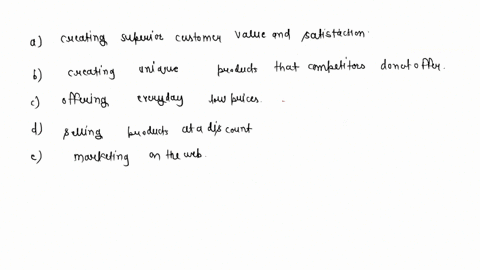 a) creating superior customer value and satisfaction.
b) creating unique products that competitors donot offer.
c) offering everyday low prices.
d) selling products at a discount
e) marketing on the web.